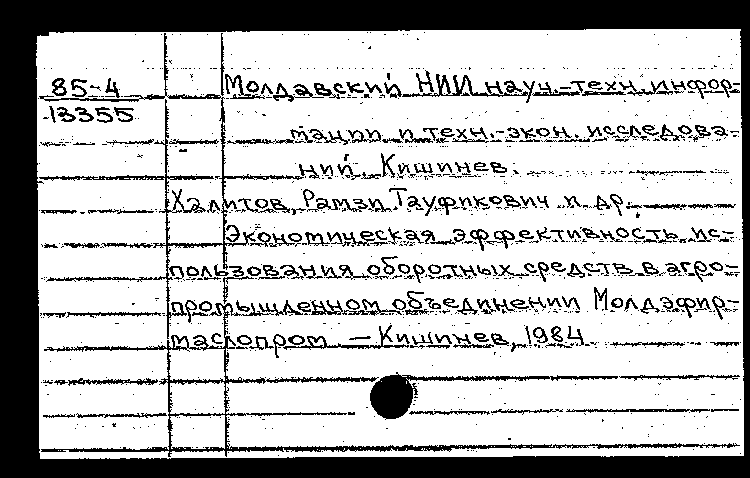 85-4
13355
Молдавский НИИ науч.-техн. инфор-
мации и техн.-экон. исследова-
ний. Кишинев.
Халитов, Рамзи Тауфикович и др.
Экономическая эффективность ис-
пользования оборотных средств в агро-
промышленном объединении Молдэфир-
маслопром — Кишинев, 1984